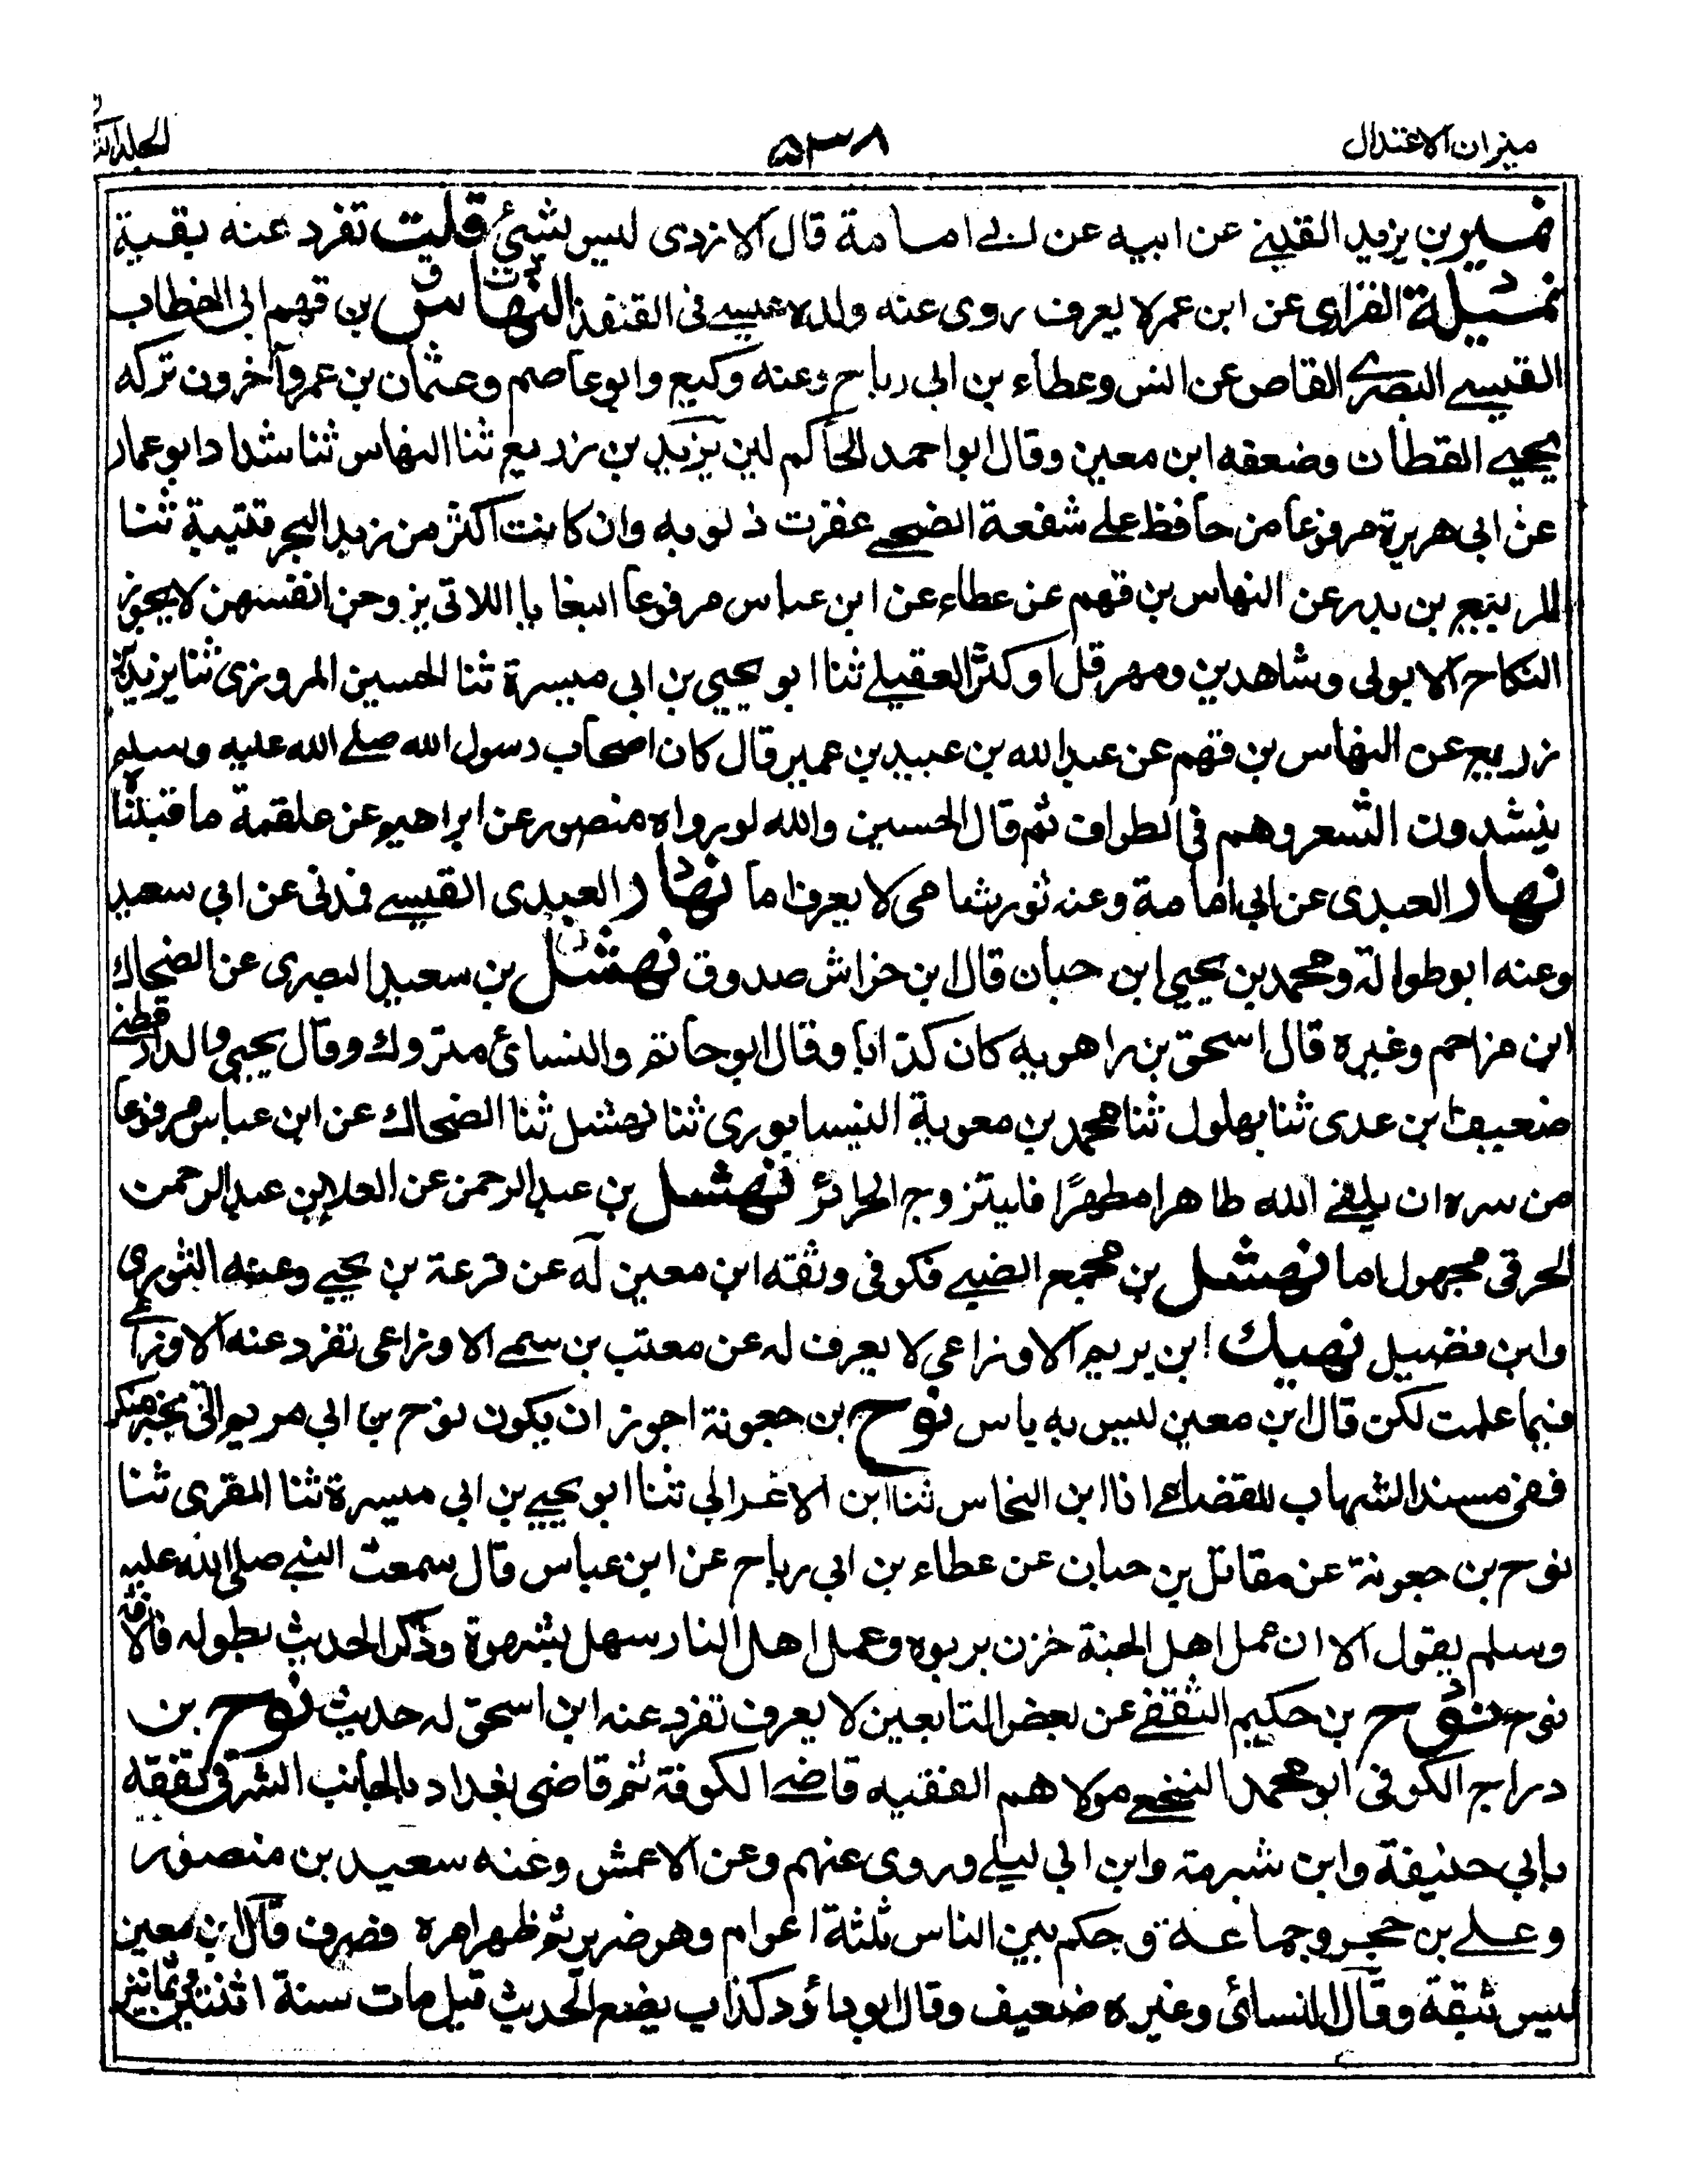 ميزان الاعتدال
٥٣٨
المجلد الثا
نمير بن يزيد القينے عن ابيه عن ابے امامة قال الازدى ليس بشئ قلت تفرد عنه بقية
نميلة الفزارى عن ابن عمر لا يعرف روى عنه ولده عيسے فى القنفذ النهاس بن قهم ابى الخطاب
القيسے البصرے القاص عن انس وعطاء بن ابى رباح وعنه وكيع وابو عاصم وعثمان بن عمر وآخرون تركه
يحيے القطان وضعفه ابن معين وقال ابو احمد الحاكم لين يزيد بن زريع ثنا النهاس ثنا شداد ابو عمار
عن ابى هريرة مرفوعا من حافظ علے شفعة الضحے غفرت ذنوبه وان كانت اكثر من زبد البحر قتيبة ثنا
الربيع بن بدر عن النهاس بن قهم عن عطاء عن ابن عباس مرفوعا البغايا اللاتى يزوجن انفسهن لا يجوز
النكاح الا بولى وشاهدين ومهر قل او كثر العقيلے ثنا ابو يحيى بن ابى ميسرة ثنا الحسين المروزى ثنا يزيد بن
زريع عن النهاس بن قهم عن عبد الله بن عبيد بن عمير قال كان اصحاب رسول الله صلے الله عليه وسلم
ينشدون الشعر وهم فى الطواف ثم قال الحسين والله لو رواه منصور عن ابراهيم عن علقمة ما قبلناه
نهار العبدى عن ابى امامة وعنه ثور شامى لا يعرف اما نهار العبدى القيسے فمدنى عن ابى سعيد
وعنه ابو طوالة ومحمد بن يحيى ابن حبان قال ابن خراش صدوق نهشل بن سعيد البصرى عن الضحاك
ابن مزاحم وغيره قال اسحق بن راهويه كان كذابا وقال ابو حاتم والنسائ متروك وقال يحيى والدارقطنے
ضعيف ابن عدى ثنا بهلول ثنا محمد بن معوية النيسابورى ثنا نهشل ثنا الضحاك عن ابن عباس مرفوعا
من سره ان يلقے الله طاهرا مطهرًا فليتزوج الحرائر نهشل بن عبد الرحمن عن العلا بن عبد الرحمن
الحرقى مجهول اما نهشل بن مجمع الضبے فكوفى وثقه ابن معين له عن قزعة بن يحيے وعنه الثورى
وابن فضيل نهيك ابن يريم الاوزاعى لا يعرف له عن معتب بن سمے الاوزاعى تفرد عنه الاوزاعے
فيما علمت لكن قال ابن معين ليس به باس نوح بن جعونة اجوز ان يكون نوح بن ابى مريم اتى بخبر منكر
ففى مسند الشهاب للقضاعے انا ابن النحاس ثنا ابن الاعرابى ثنا ابو يحيے بن ابى ميسرة ثنا المقرى ثنا
نوح بن جعونة عن مقاتل بن حبان عن عطاء بن ابى رباح عن ابن عباس قال سمعت النبے صلى الله عليه
وسلم يقول الا ان عمل اهل الجنة حزن بربوه وعمل اهل النار سهل بشهوة وذكر الحديث بطوله فالافة
نوح نوح بن حكيم الثقفے عن بعض التابعين لا يعرف تفرد عنه ابن اسحق له حديث نوح بن
دراج الكوفى ابو محمد النخعے مولاهم الفقيه قاضے الكوفة ثم قاضى بغداد بالجانب الشرقى تفقه
بابى حنيفة وابن شبرمة وابن ابى ليلے وروى عنهم وعن الاعمش وعنه سعيد بن منصور
وعلے بن حجر وجماعة وحكم بين الناس ثلثة اعوام وهو ضرير ثم ظهر امره فصرف قال ابن معين
ليس بثقة وقال النسائى وغيره ضعيف وقال ابو داؤد كذاب يضع الحديث قيل مات سنة اثنتين وثمانين